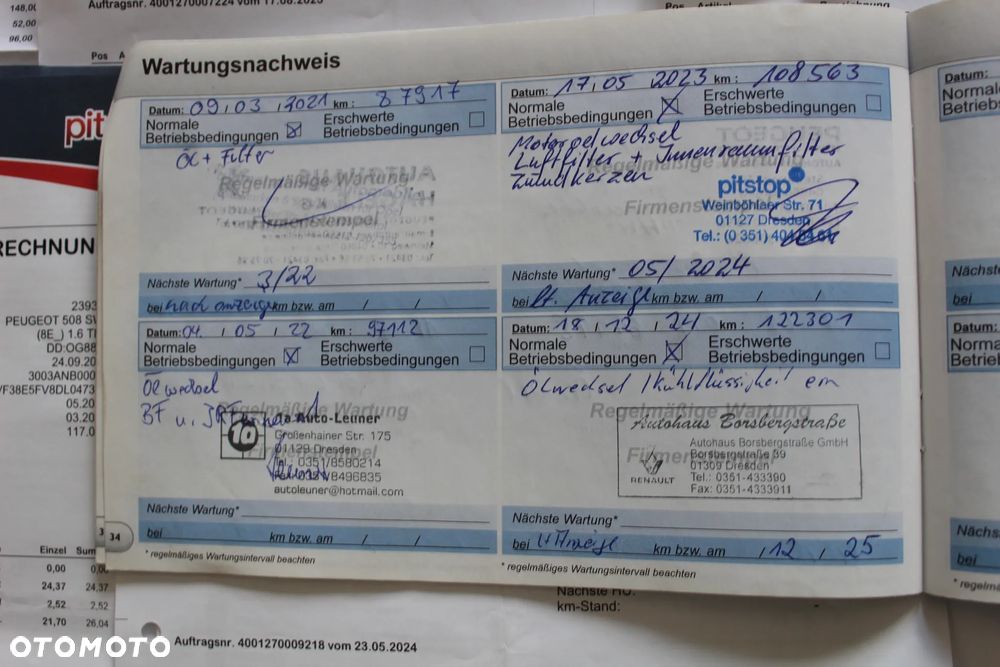 148,00
52,00
96,00
Auftragsnr. 4001270007224 vom 17.08.2023
Pos Artikel
Pos A
pit
RECHNUN
2393
PEUGEOT 508 SW
(8E_) 1.6 TH
DD:OG88
24.09.20
3003ANB000
VF38E5FV8DL0473
05.20
03.20
117.0
Einzel Sum
0,00 0,00
24,37 24,37
2,52 2,52
21,70 26,04
Wartungsnachweis
Datum: 09,03,2021 km: 87917
Normale Betriebsbedingungen
Erschwerte Betriebsbedingungen
Öl + Filter
Regelmäßige Wartung
Firmenstempel
Nächste Wartung* 3/22
bei nach anzeige km bzw. am / /
Datum: 17,05,2023 km: 108563
Normale Betriebsbedingungen
Erschwerte Betriebsbedingungen
Motoroelwechsel
Luftfilter + Innenraumfilter
Zündkerzen
Regelmäßige Wartung
pitstop
Weinböhlaer Str. 71
01127 Dresden
Tel.: (0 351) 404
Nächste Wartung* 05/2024
bei lt. Anzeige km bzw. am / /
Datum: 04,05,22 km: 97112
Normale Betriebsbedingungen
Erschwerte Betriebsbedingungen
Ölwechsel
BF u.
Regelmäßige Wartung
1a Auto-Leuner
Großenhainer Str. 175
01129 Dresden
Tel. 0351/8580214
Fax 0351/8496835
autoleuner@hotmail.com
Nächste Wartung*
bei km bzw. am / /
* regelmäßiges Wartungsintervall beachten
34
Datum: 18,12,24 km: 122301
Normale Betriebsbedingungen
Erschwerte Betriebsbedingungen
Ölwechsel / Kühlflüssigkeit ern
Regelmäßige Wartung
Autohaus Borsbergstraße
Autohaus Borsbergstraße GmbH
Borsbergstraße 39
01309 Dresden
Tel.: 0351-433390
Fax: 0351-4333911
RENAULT
Nächste Wartung*
bei lt Anzeige km bzw. am ,12,25
* regelmäßiges Wartungsintervall beachten
Datum:
Norma
Betrieb
Nächste
bei
Datum:
Norma
Betrieb
Nächs
bei
* regelmä
Nächste HU:
km-Stand:
Auftragsnr. 4001270009218 vom 23.05.2024
OTOMOTO